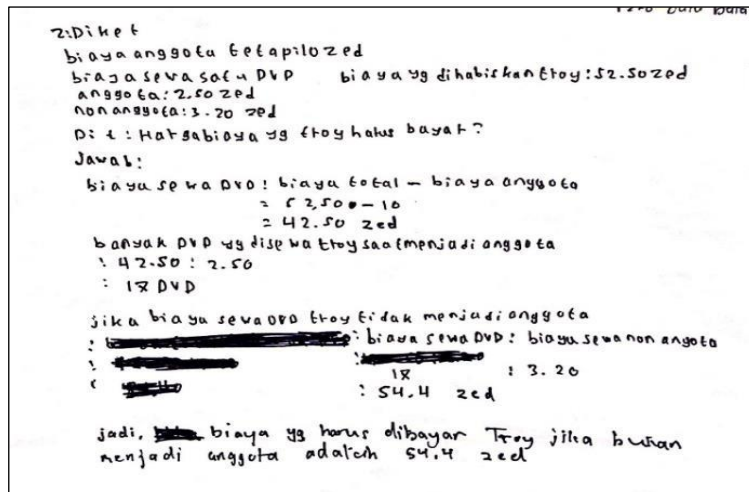 2. Diket
biaya anggota tetap : 10 zed
biaya sewa satu DVD biaya yg dihabiskan troy : 52.50 zed
anggota : 2.50 zed
non anggota : 3.20 zed
Dit : Harga biaya yg troy harus bayar ?
Jawab :
biaya sewa DVD : biaya total - biaya anggota
= 52,50 - 10
= 42.50 zed
banyak DVD yg disewa troy saat menjadi anggota
: 42.50 : 2.50
: 17 DVD
jika biaya sewa DVD troy tidak menjadi anggota
: biaya sewa DVD : biaya sewa non anggota
17 : 3.20
: 54.4 zed
jadi, biaya yg harus dibayar Troy jika bukan
menjadi anggota adalah 54,4 zed